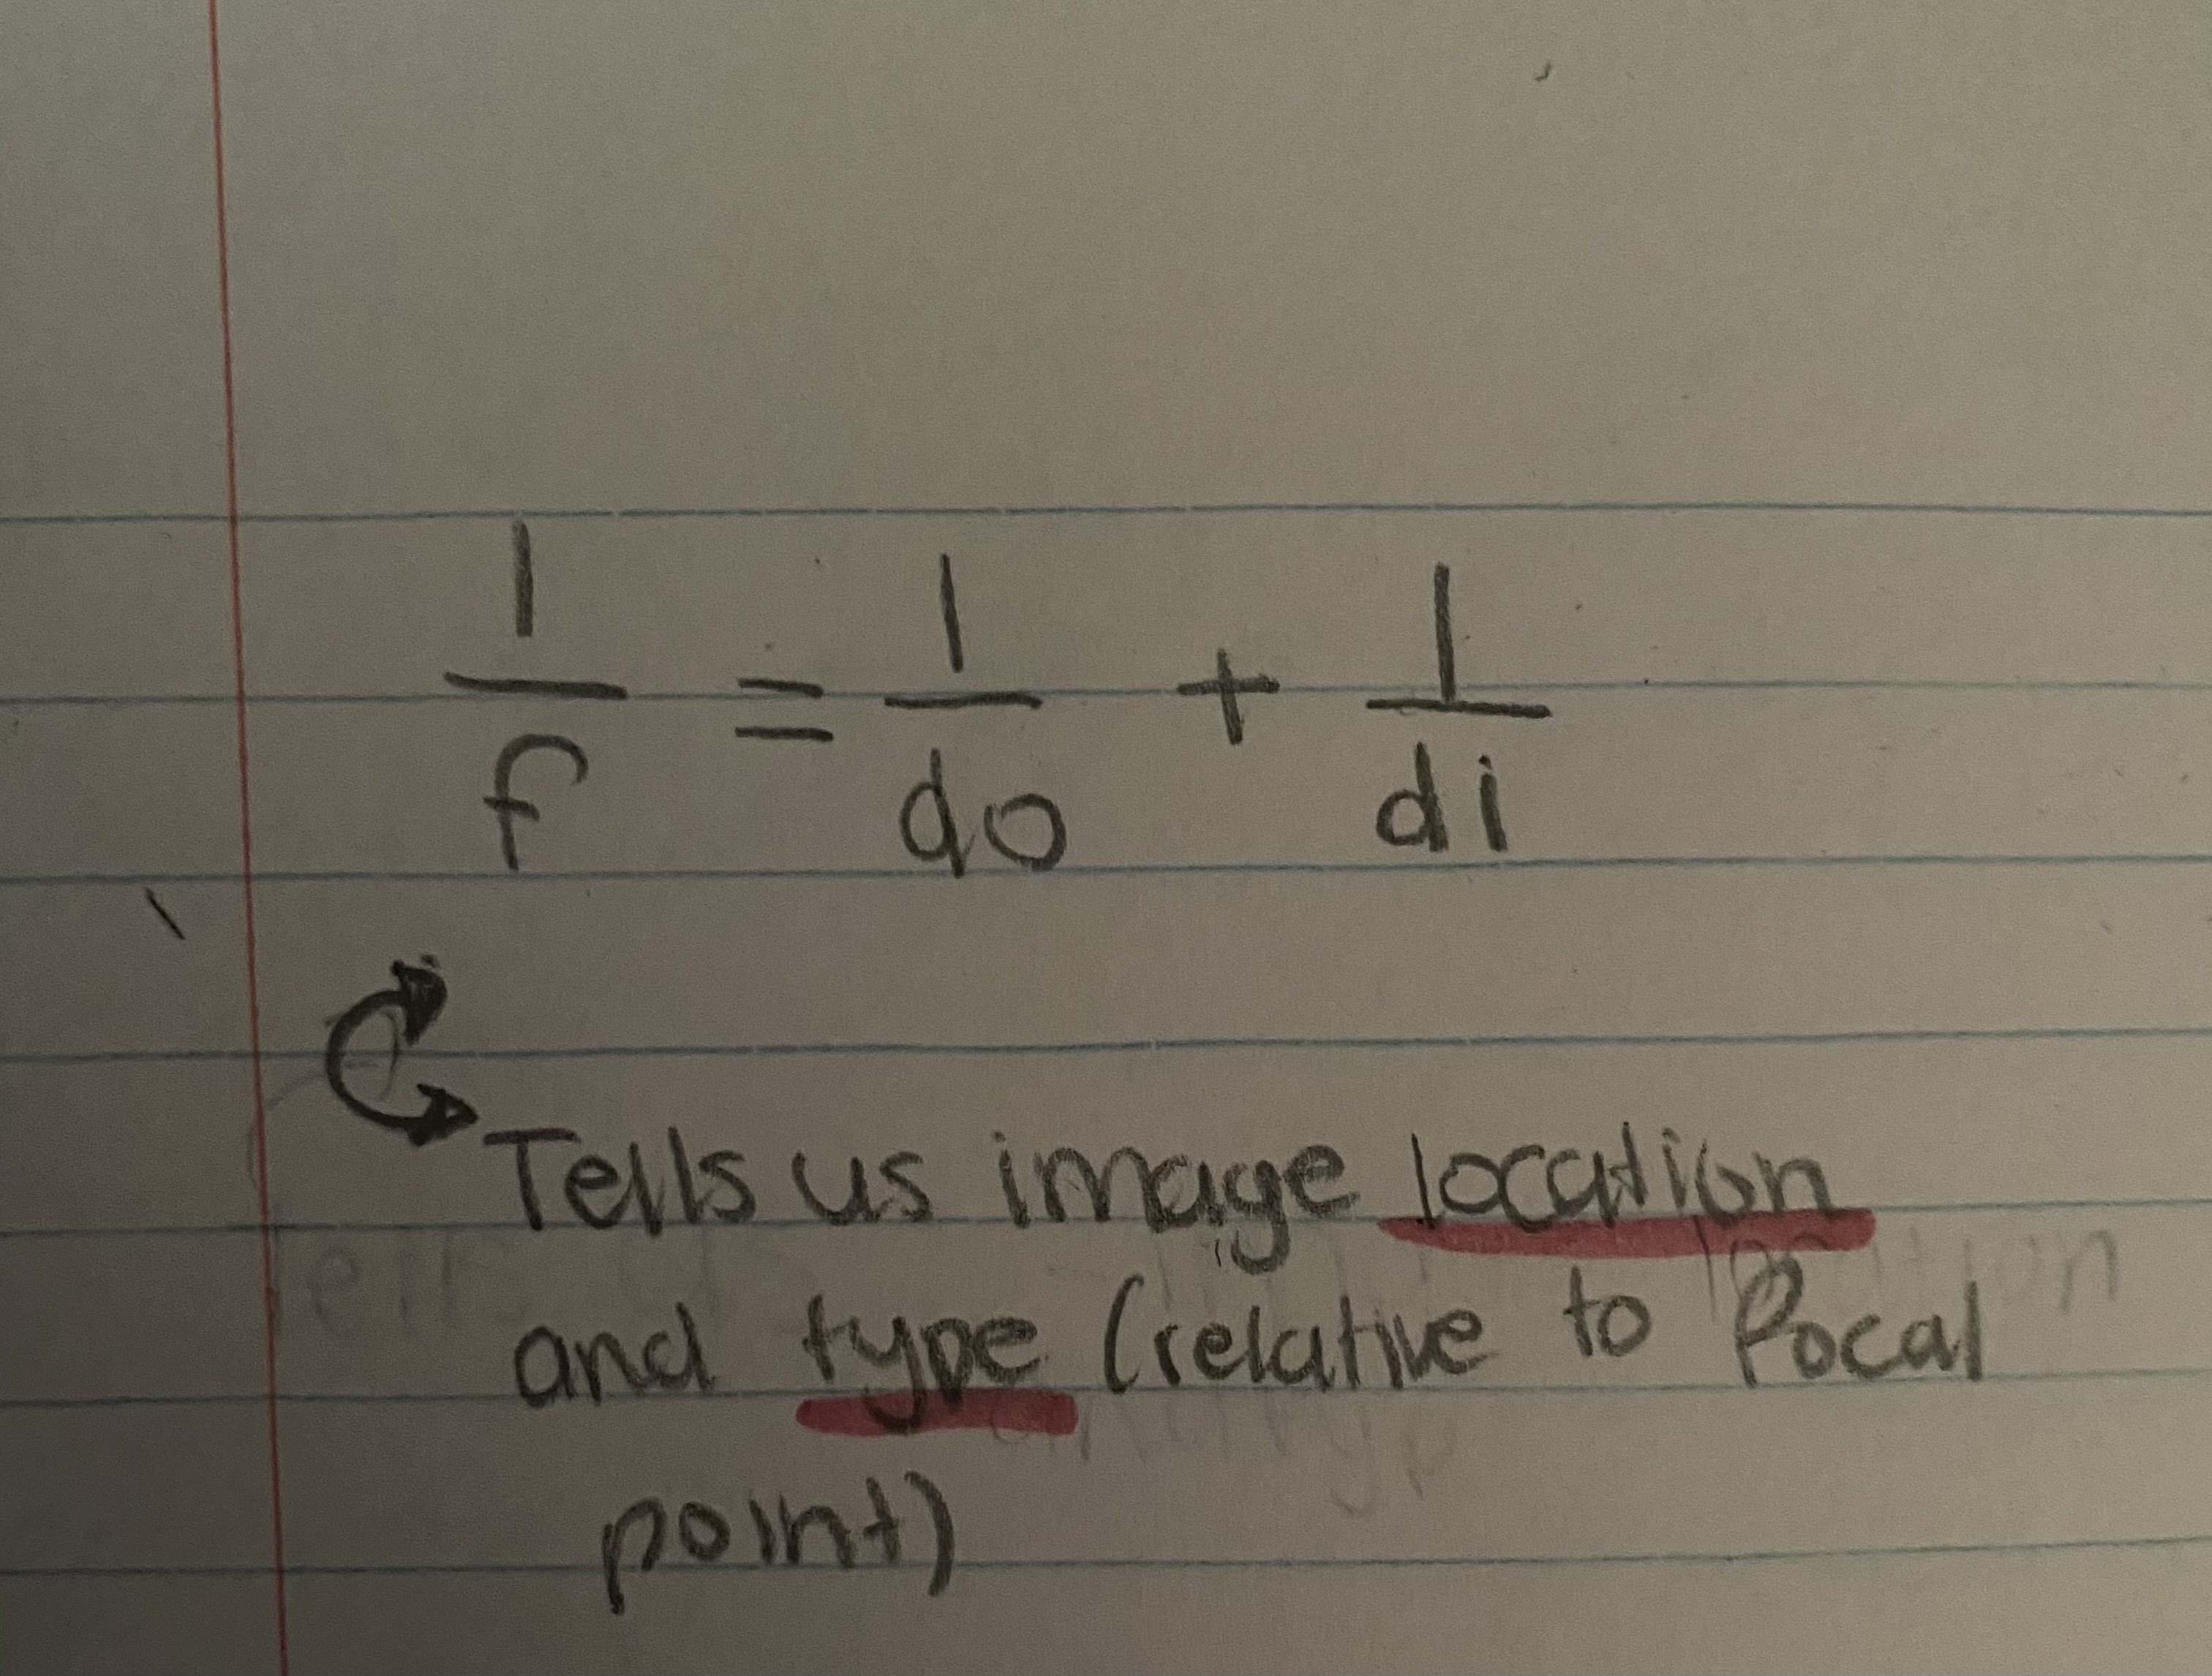 1/f = 1/do + 1/di
Tells us image location
and type (relative to focal
point)